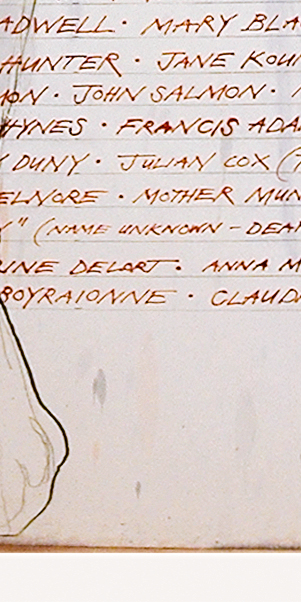 ADWELL · MARY BLA
HUNTER · JANE KOU
MON · JOHN SALMON ·
HYNES · FRANCIS ADA
Y DUNY · JULIAN COX (
ELNORE · MOTHER MUN
" (NAME UNKNOWN - DEA
INE DELORT · ANNA M
BOYRAIONNE · CLAUD